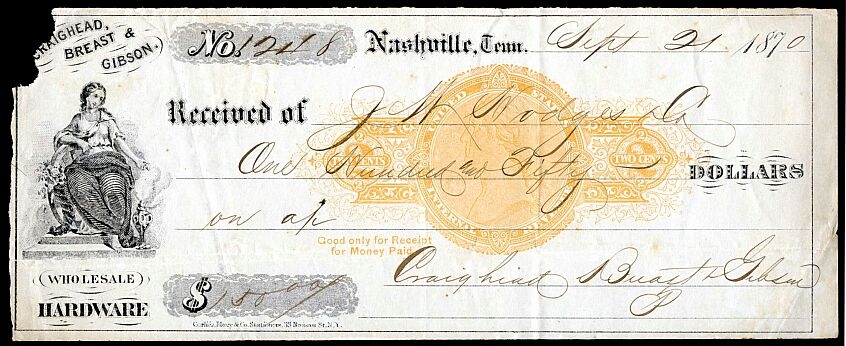 CRAIGHEAD,
BREAST &
GIBSON.
No. 1218 Nashville, Tenn. Sept 21 1870
Received of J W Hodges & Co
UNITED STATES
INTERNAL REVENUE
TWO CENTS
TWO CENTS
One Hundred and Fifty DOLLARS
on a/c
Good only for Receipt
for Money Paid.
Craighead Breast & Gibson
P
(WHOLESALE)
HARDWARE
$150.00
Stationers, 33 Nassau St. N.Y.